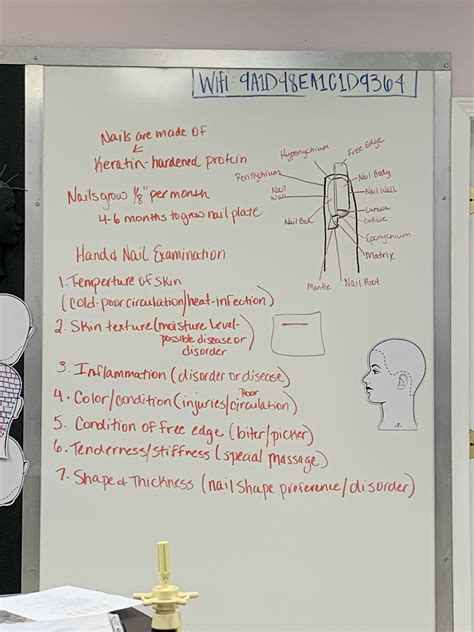 Wifi: 9A1D48EA1C1D9364
Nails are made of
Keratin-hardened protein
Nails grow 1/8" per month
4-6 months to grow nail plate
Hyponychium
Free Edge
Perionychium
Nail Body
Nail Wall
Nail Wall
Lunula
Cuticle
Nail Bed
Eponychium
Matrix
Mantle
Nail Root
Hand & Nail Examination
1. Temperture of Skin
(cold-poor circulation/heat-infection)
2. Skin texture (moisture level-
possible disease or
disorder)
3. Inflammation (disorder or disease)
4. Color/condition (injuries/poor circulation)
5. Condition of free edge (biter/picker)
6. Tenderness/stiffness (special massage)
7. Shape & Thickness (nail shape preference/disorder)